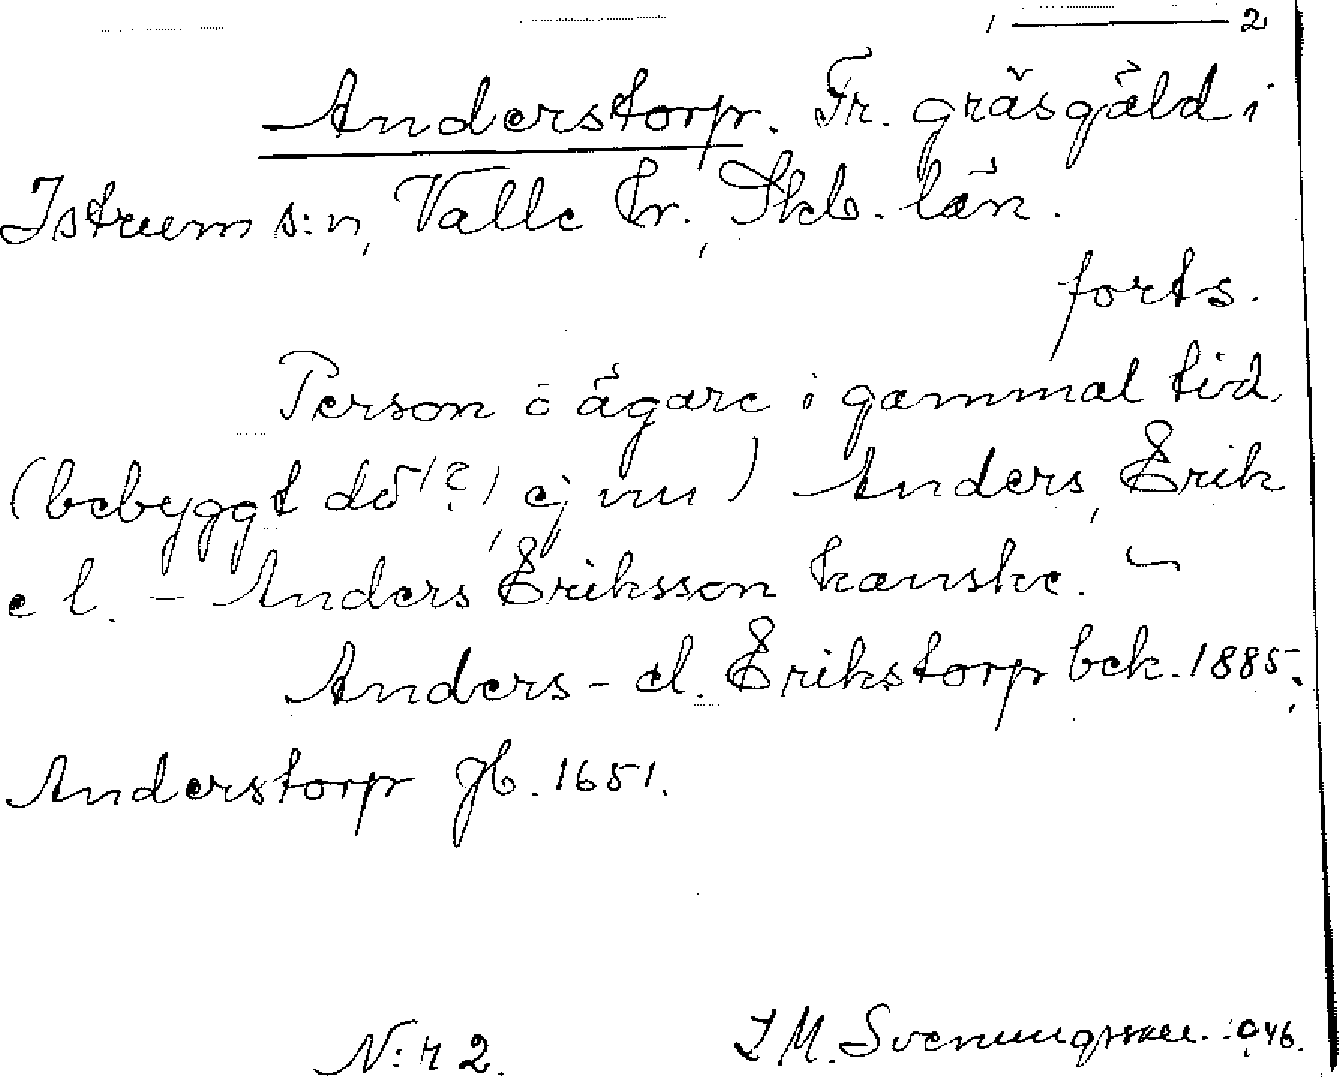 1 ——— 2
Anderstorp. Fr. gräsgäld i
Istrum s:n, Valle hr., Skb. län.
forts.
Person o ägare i gammal tid
(bebyggt då (?), ej nu) Anders, Erik
el. - Anders Eriksson kanske. ~
Anders- el. Erikstorp bek. 1885;
Anderstorp jb. 1651.
N:r 2. I M. Svenungsson. 946.